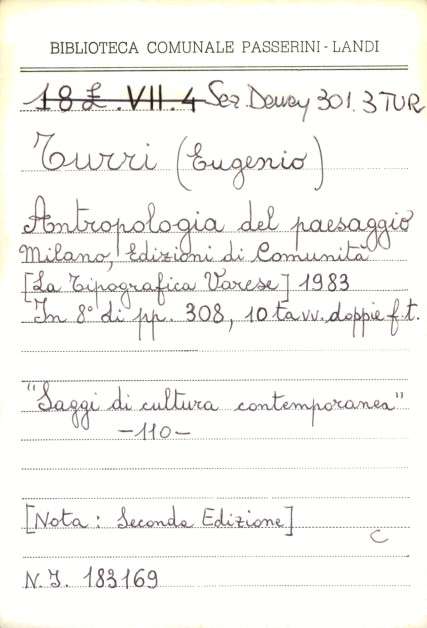 BIBLIOTECA COMUNALE PASSERINI - LANDI
18 £ .VII. 4 Sez. Dewey 301.3 TUR
Turri (Eugenio)
Antropologia del paesaggio
Milano, Edizioni di Comunità
[La Tipografica Varese] 1983
In 8° di pp. 308, 10 tavv. doppie f.t.
"Saggi di cultura contemporanea"
-110-
[Nota : Seconda Edizione]
C
N.I. 183169